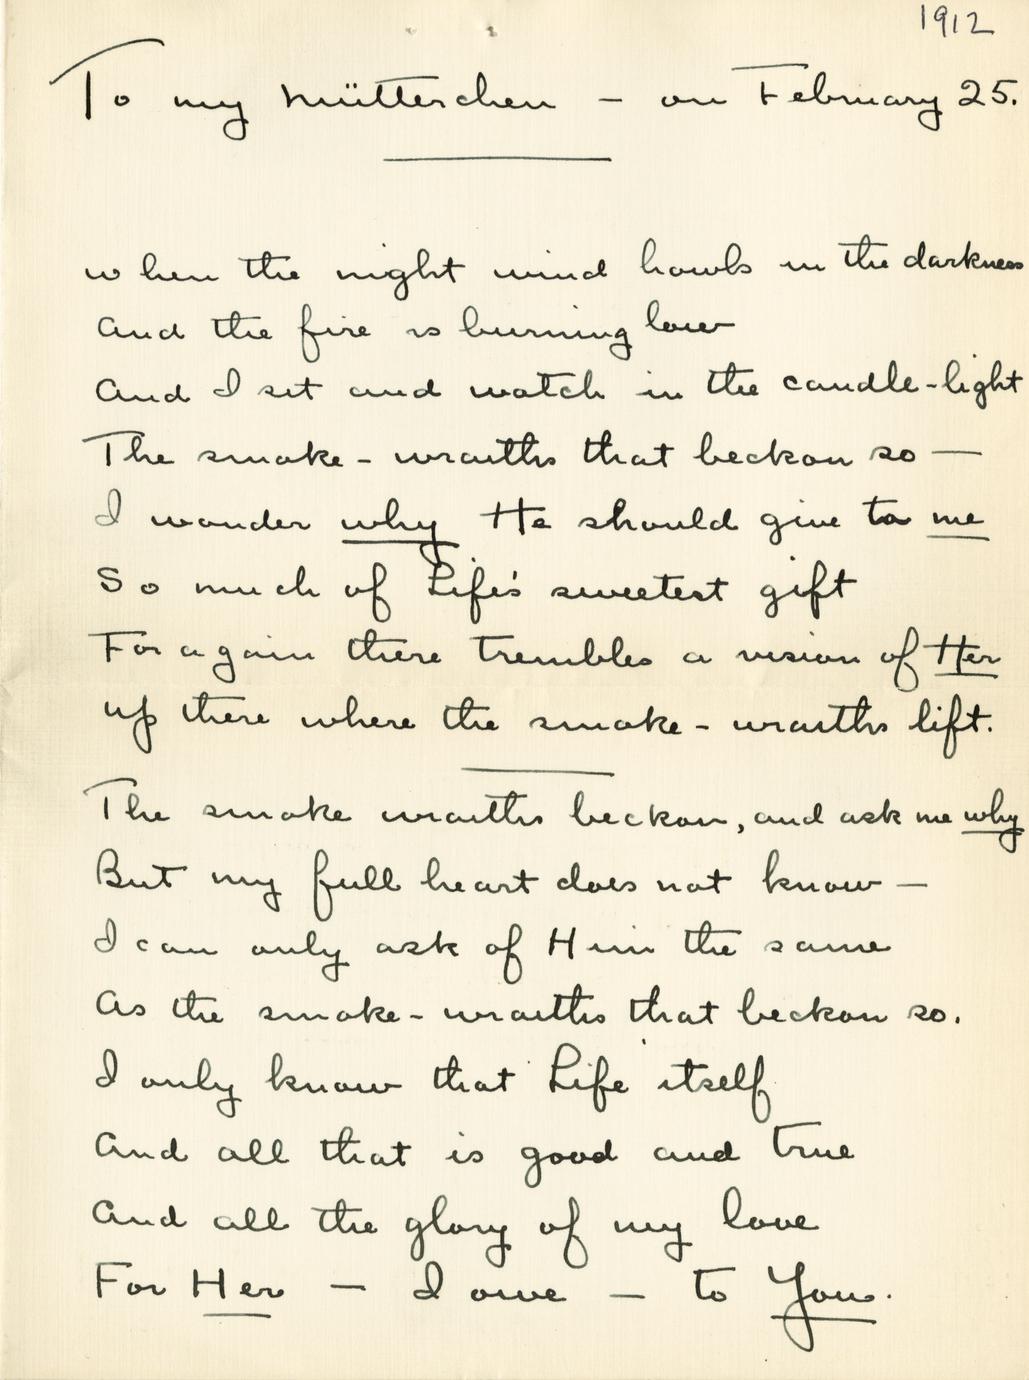 1912
To my Mütterchen – on February 25.
When the night wind howls in the darkness
And the fire is burning low
And I sit and watch in the candle-light
The smoke-wraiths that beckon so —
I wonder why He should give to me
So much of Life's sweetest gift
For again there trembles a vision of Her
Up there where the smoke-wraiths lift.
The smoke wraiths beckon, and ask me why
But my full heart does not know —
I can only ask of Him the same
As the smoke-wraiths that beckon so.
I only know that Life itself
And all that is good and true
And all the glory of my love
For Her — I owe — to You.